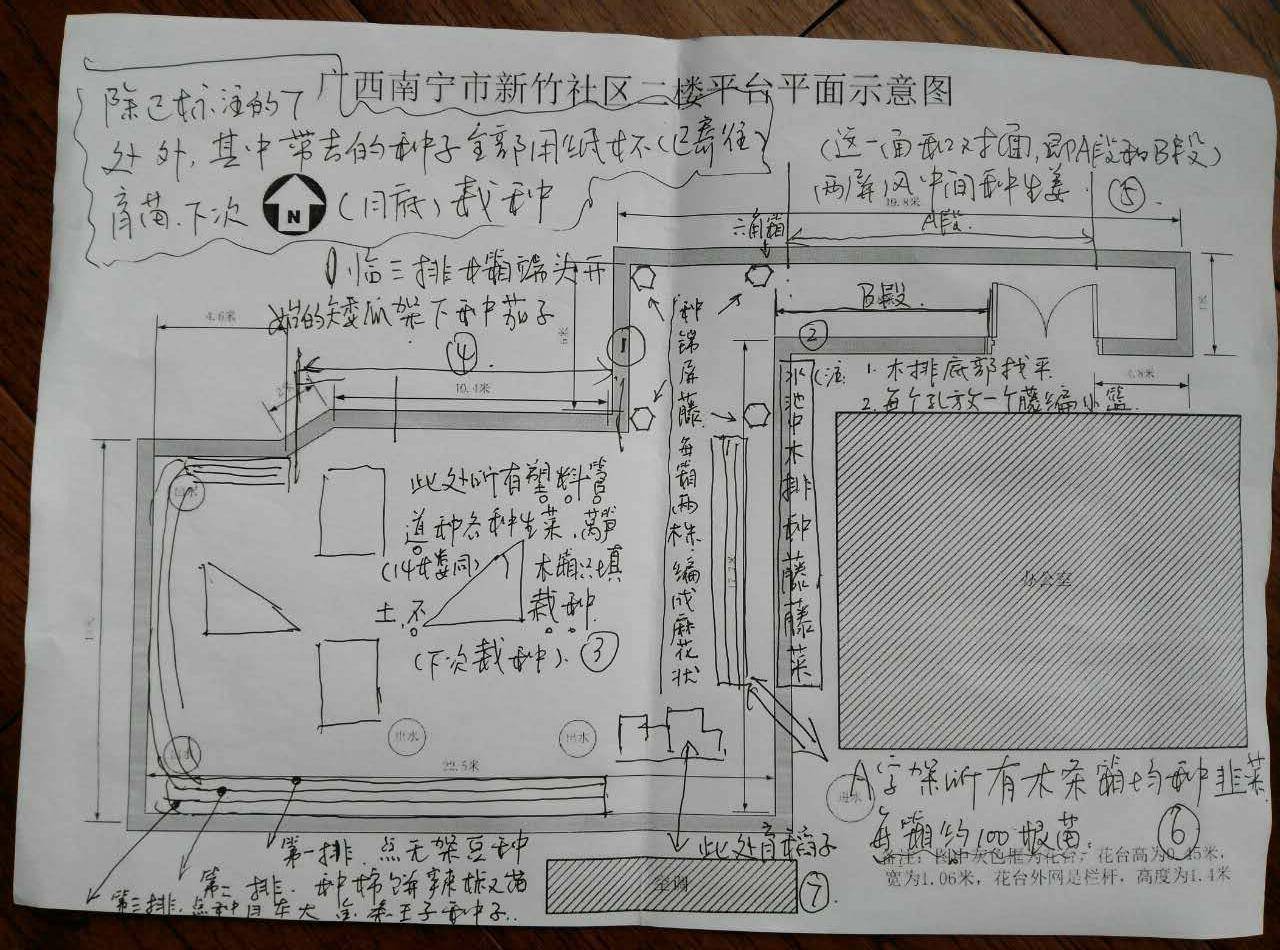 广西南宁市新竹社区二楼平台平面示意图
除已标注的7
处外，其中带去的种子全部用纸杯（已寄往）
育苗.下次
N
（月底）栽种
（这一面和对面，即A段和B段）
两屏风中间种生姜
⑤
19.8米
六角箱
A段.
①临三排木箱端头开
始的矮瓜架下种茄子
④
4.6米
10.4米
B段.
①
②
4.8米
（注：1.木排底部找平
2.每个孔放一个藤编小篮.
水池中木排种藤藤菜
种锦屏藤.每箱两株.编成麻花状
此处所有塑料管
道种各种生菜.莴笋
（14娄同）
木箱只填
土.不
栽种.
（下次栽种）.③
办公室
出水
出水
22.5米
A字架所有木条箱均种韭菜
进水
每箱约100根苗.
⑥
备注：图中灰色框为花台，花台高为0.45米，
宽为1.06米，花台外网是栏杆，高度为1.4米
此处育稻子
空调
⑦
第一排.点无架豆种
第二排.种
第三排.点种
种子.